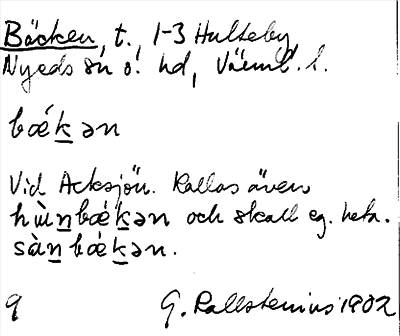 Bäcken, t., 1-3 Hulteby,
Nyeds sn o. hd, Värml. l.
bǽk̲ən
Vid Acksjön. Kallas även
hùn̲bǽk̲ən och skall eg. heta.
sàn̲bǽk̲ən.
9 G. Kallstenius 1902